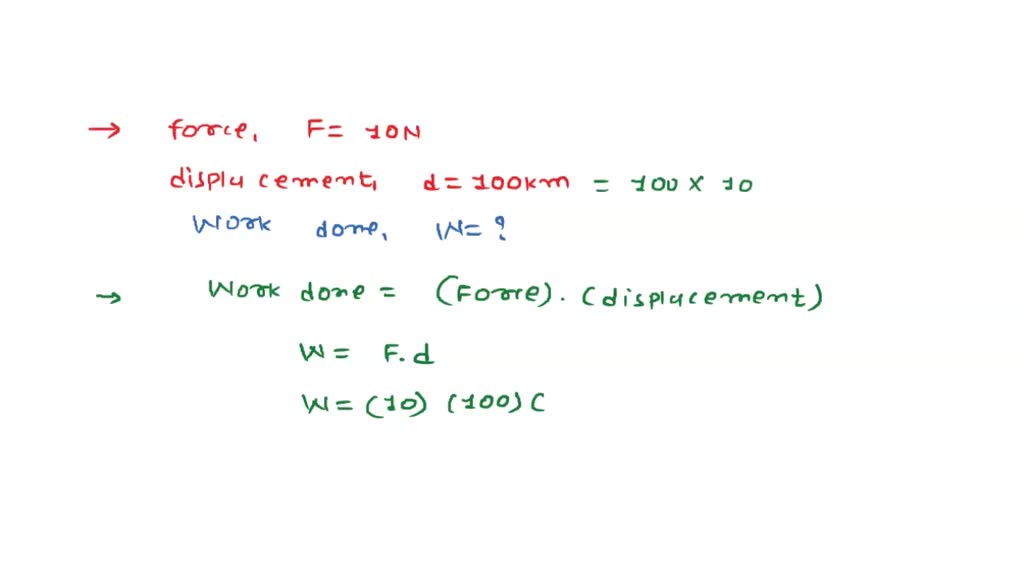 → force, F= 10N
displacement, d = 100km = 100 x 10
Work done, W= ?
→ Work done = (Force). (displacement)
W = F.d
W = (10) (100) (